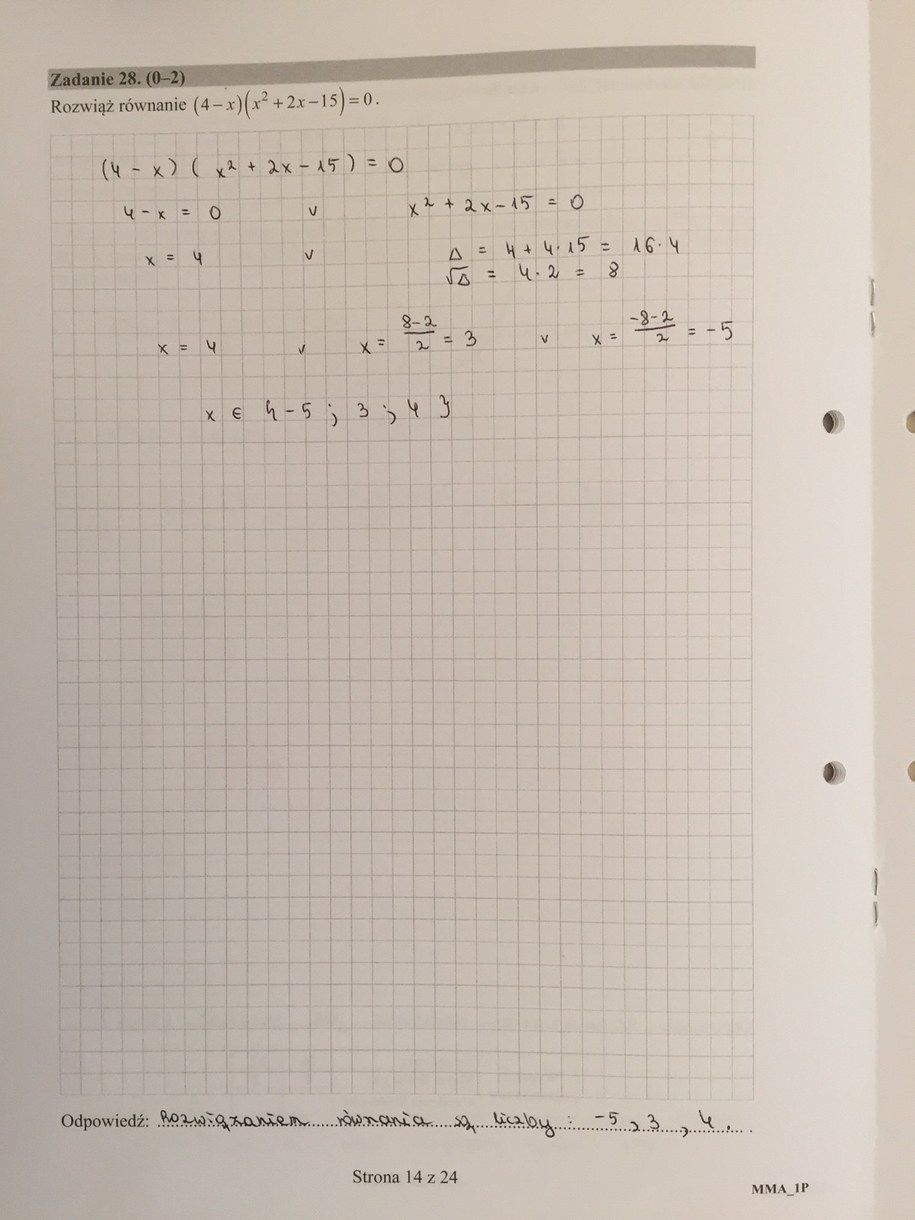 Zadanie 28. (0–2)
Rozwiąż równanie (4−x)(x²+2x−15)=0.
(4 − x) ( x² + 2x − 15 ) = 0
4 − x = 0 ∨ x² + 2x − 15 = 0
x = 4 ∨ Δ = 4 + 4·15 = 16·4
√Δ = 4·2 = 8
x = 4 ∨ x = (8−2)/2 = 3 ∨ x = (−8−2)/2 = −5
x ∈ {−5 ; 3 ; 4}
Odpowiedź: Rozwiązaniem równania są liczby : −5, 3, 4.
Strona 14 z 24
MMA_1P